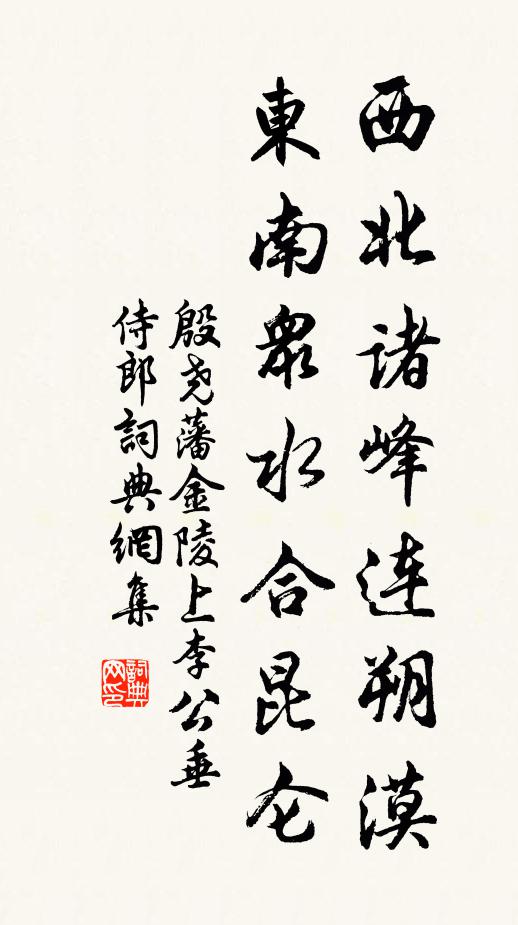 西北诸峰连朔漠
東南眾水合昆仑
殷尧藩金陵上李公垂
侍郎詞典網集
詞典网印